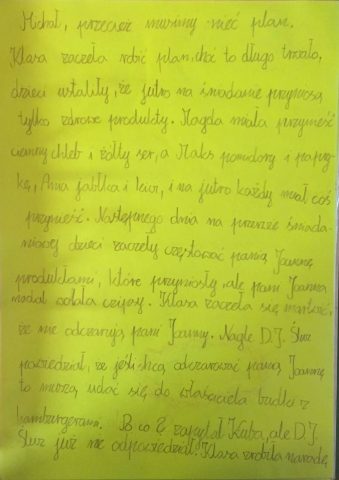 Michał, przecież musimy mieć plan.
Klasa zaczęła robić plan, choć to długo trwało,
dzieci ustaliły, że jutro na śniadanie przyniosą
tylko zdrowe produkty. Magda miała przynieść
czarny chleb i żółty ser, a Maks pomidory i papry-
kę, Anna jabłka i kiwi, i na jutro każdy miał coś
przynieść. Następnego dnia na przerwie śniada-
niowej dzieci zaczęły częstować panią Joannę
produktami, które przyniosły, ale pani Joanna
nadal wolała czipsy. Klasa zaczęła się martwić,
że nie odczarują pani Joanny. Nagle D.J. Ślur
powiedział, że jeśli chcą odczarować panią Joannę
to muszą udać się do właściciela budki z
hamburgerami. B co? zapytał Kuba, ale D.J.
Ślur już nie odpowiedział. Klasa zrobiła naradę